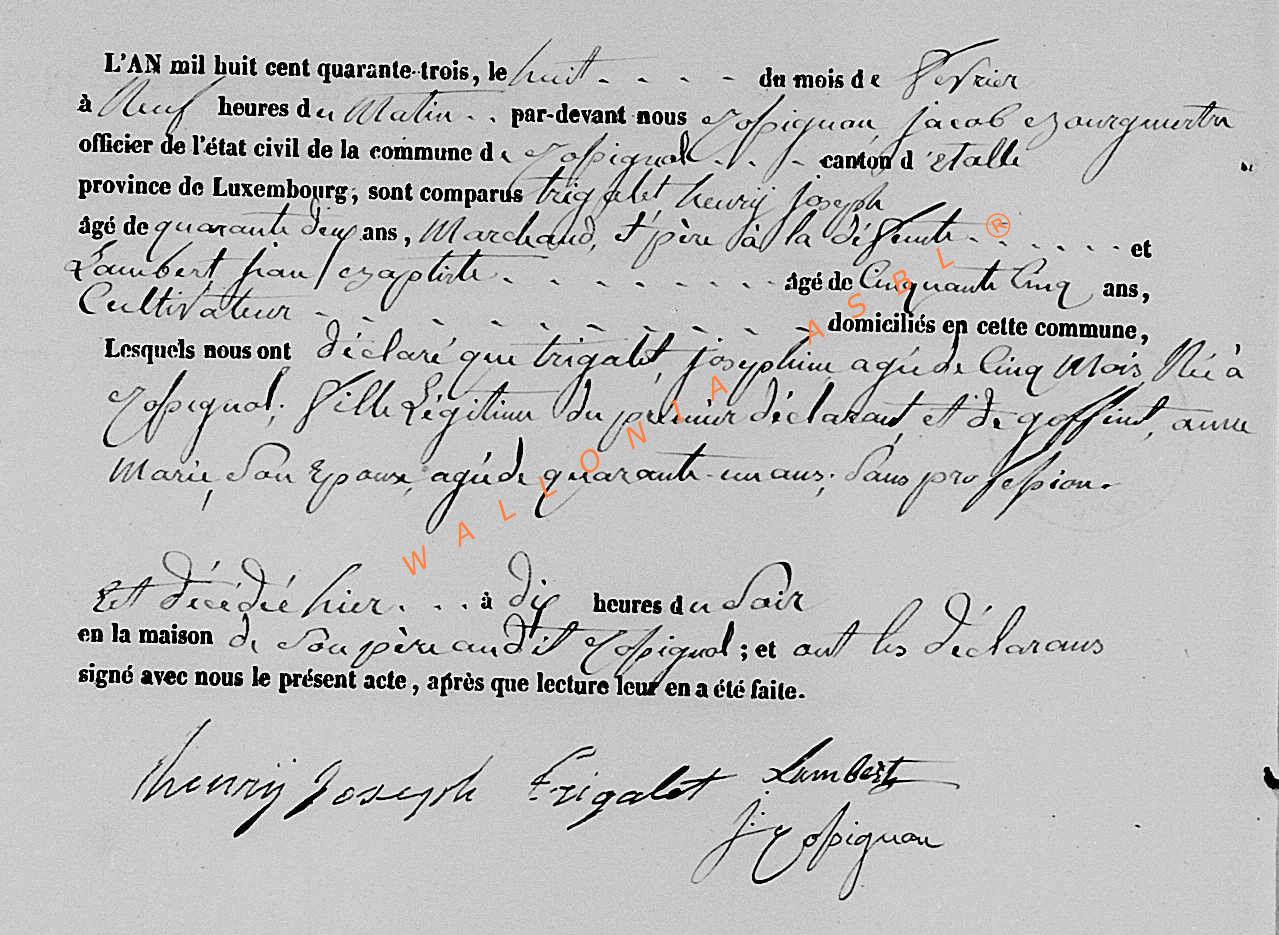 L'AN mil huit cent quarante-trois, le huit - - - - du mois de fevrier
à Neuf heures du Matin - - par-devant nous Rossignon, jacob Bourgmestre
officier de l'état civil de la commune de Rossignol - - - canton d'Etalle
province de Luxembourg, sont comparus trigalet, henrij joseph
âgé de quarante deux ans, Marchand, et père à la défunte - - - - - - - et
Lambert jean Baptiste - - - - - - - - - âgé de Cinquante Cinq ans,
Cultivateur - - - - - - - - - - - domiciliés en cette commune,
Lesquels nous ont déclaré que trigalet, josephine agée de Cinq Mois, Née à
Rossignol; fille Légitime du premier déclarant et de goffinet, anne
Marie, son Epouse, agée de quarante-un ans; sans profession.
Est décédée hier - - - à dix heures du Soir
en la maison de son père audit Rossignol; et ont les déclarans
signé avec nous le présent acte, après que lecture leur en a été faite.
henrij Joseph Trigalet Lambert
J: Rossignon
WALLONIA ASBL ®